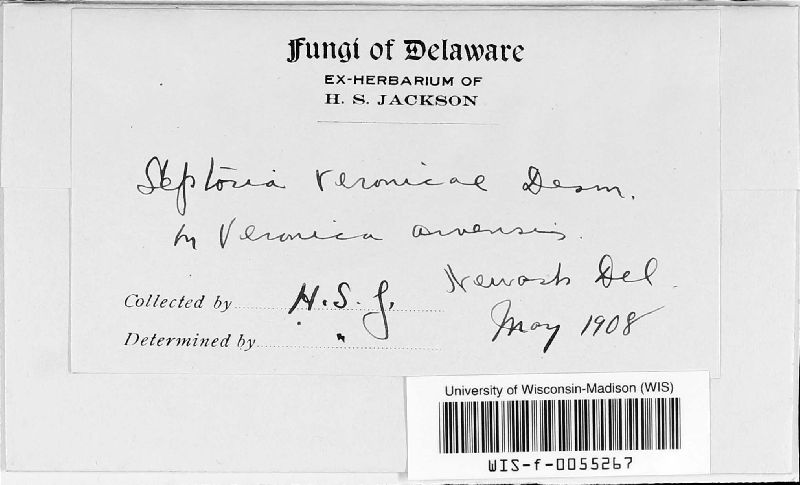 Fungi of Delaware
EX-HERBARIUM OF
H. S. JACKSON
Septoria Veronicae Desm.
on Veronica arvensis.
Newark Del.
Collected by H. S. J.
May 1908
Determined by "
University of Wisconsin-Madison (WIS)
WIS-f-0055267